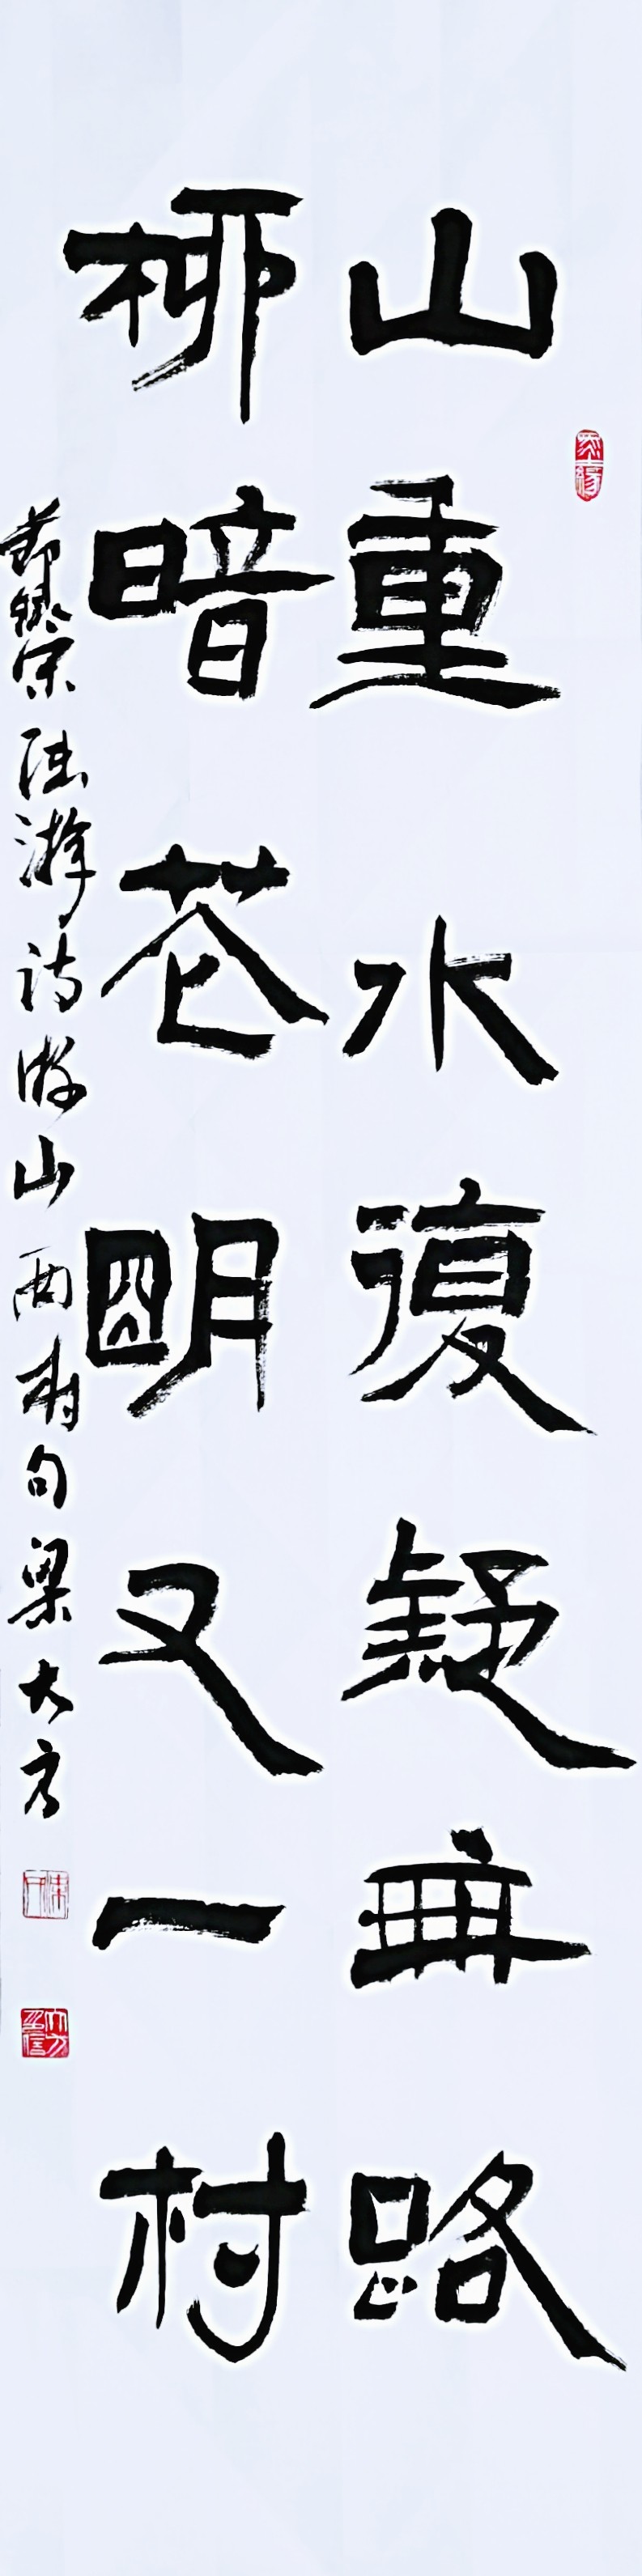 山重水復疑無路
柳暗花明又一村
節錄宋陆游诗游山西村句梁大方